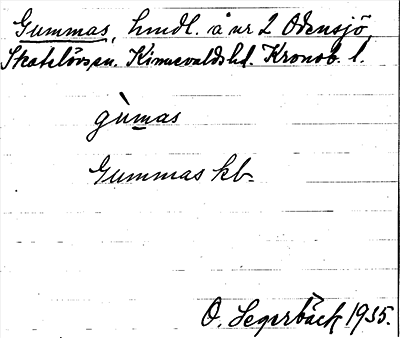 Gummas, hmdl. å nr 2 Odensjö,
Skatelövs sn. Kinnevalds hd. Kronob. l.
gùmas
Gummas kb.
O. Segerbäck 1935.